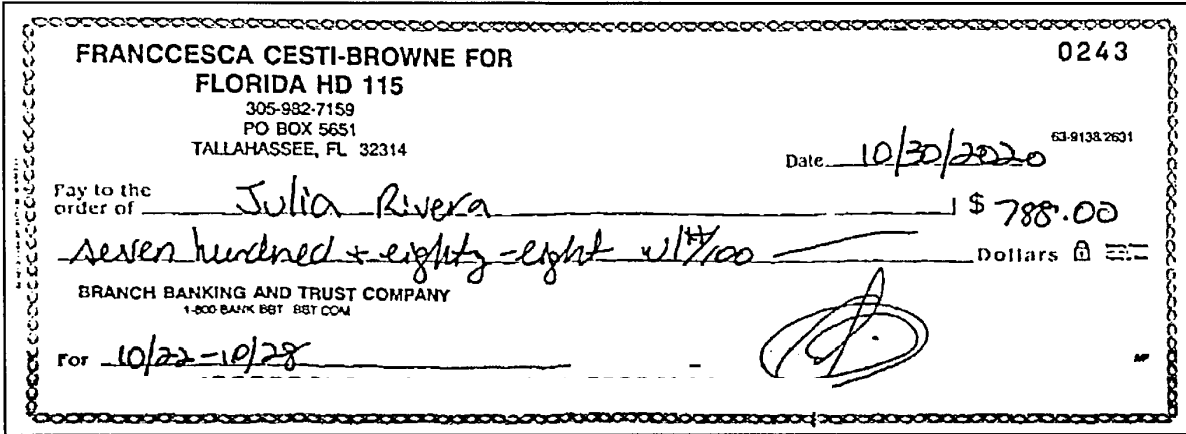 FRANCCESCA CESTI-BROWNE FOR
FLORIDA HD 115
305-982-7159
PO BOX 5651
TALLAHASSEE, FL 32314
0243
63-9138/2631
Date 10/30/2020
Pay to the
order of Julia Rivera $ 788.00
seven hundred + eighty-eight w/ /100 Dollars
BRANCH BANKING AND TRUST COMPANY
1-800-BANK BBT BBT.COM
For 10/22-10/28
MP